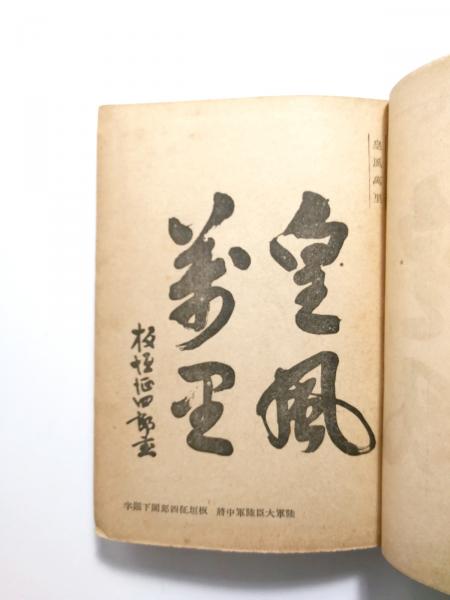 皇風萬里
皇風
萬里
板垣征四郎書
陸軍大臣陸軍中將 板垣征四郎閣下題字